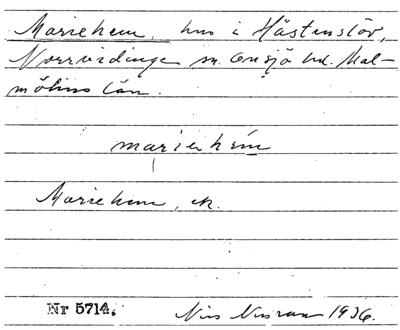 Mariehem, hus i Håstenslöv,
Norrvidinge sn. Onsjö hd. Mal-
möhus län.
marienhem
Mariehem, ek.
Nr 5714.
Nils Nilsson 1936.